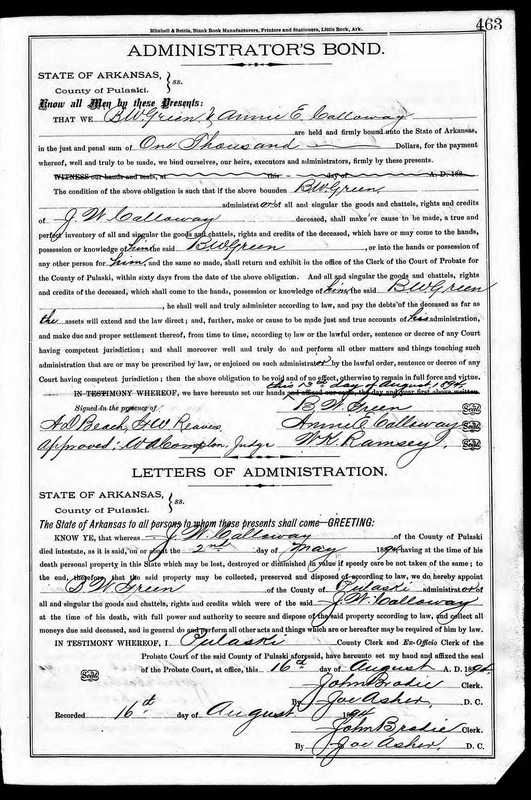 463
Mitchell & Bettis, Blank Book Manufacturers, Printers and Stationers, Little Rock, Ark.
ADMINISTRATOR'S BOND.
STATE OF ARKANSAS,
County of Pulaski. } ss.
Know all Men by these Presents:
THAT WE B.W. Green & Annie E. Calloway
are held and firmly bound unto the State of Arkansas,
in the just and penal sum of One Thousand Dollars, for the payment
whereof, well and truly to be made, we bind ourselves, our heirs, executors and administrators, firmly by these presents.
WITNESS our hands and seals, at this day of A. D. 188
The condition of the above obligation is such that if the above bounden B.W. Green
administrator of all and singular the goods and chattels, rights and credits
of J. W. Calloway deceased, shall make or cause to be made, a true and
perfect inventory of all and singular the goods and chattels, rights and credits of the deceased, which have or may come to the hands,
possession or knowledge of him the said B.W. Green, or into the hands or possession of
any other person for him, and the same so made, shall return and exhibit in the office of the Clerk of the Court of Probate for
the County of Pulaski, within sixty days from the date of the above obligation. And all and singular the goods and chattels, rights
and credits of the deceased, which shall come to the hands, possession or knowledge of him, the said B.W. Green
, he shall well and truly do administer according to law, and pay the debts of the deceased as far as
the assets will extend and the law direct; and, further, make or cause to be made just and true accounts of his administration,
and make due and proper settlement thereof, from time to time, according to law or the lawful order, sentence or decree of any Court
having competent jurisdiction; and shall moreover well and truly do and perform all other matters and things touching such
administration that are or may be prescribed by law, or enjoined on such administrator by the lawful order, sentence or decree of any
Court having competent jurisdiction; then the above obligation to be void and of no effect, otherwise to remain in full force and virtue.
this 13th day of August, 1894.
IN TESTIMONY WHEREOF, we have hereunto set our hands and affixed our seals, the day and year first above written.
Signed in the presence of B. W. Green Seal
A.D. Beach, G.W. Reaves Annie E Calloway Seal
Approved: W A Compton, Judge W.K. Ramsey. Seal
LETTERS OF ADMINISTRATION.
STATE OF ARKANSAS,
County of Pulaski. } ss.
The State of Arkansas to all persons to whom these presents shall come—GREETING:
KNOW YE, that whereas J. W. Calloway of the County of Pulaski
died intestate, as it is said, on or about the 2nd day of May 1894 having at the time of his
death personal property in this State which may be lost, destroyed or diminished in value if speedy care be not taken of the same; to
the end, therefore, that the said property may be collected, preserved and disposed of according to law, we do hereby appoint
B. W. Green of the County of Pulaski administrator of
all and singular the goods and chattels, rights and credits which were of the said J. W. Calloway
at the time of his death, with full power and authority to secure and dispose of the said property according to law, and collect all
moneys due said deceased, and in general do and perform all other acts and things which are or hereafter may be required of him by law.
IN TESTIMONY WHEREOF, I Pulaski County Clerk and Ex-Officio Clerk of the
Probate Court of the said County of Pulaski aforesaid, have hereunto set my hand and affixed the seal
Seal of the Probate Court, at office, this 16th day of August A. D. 1894.
John Brodie Clerk.
By Joe Asher, D. C.
Recorded 16th day of August 1894
John Brodie Clerk.
By Joe Asher, D. C.